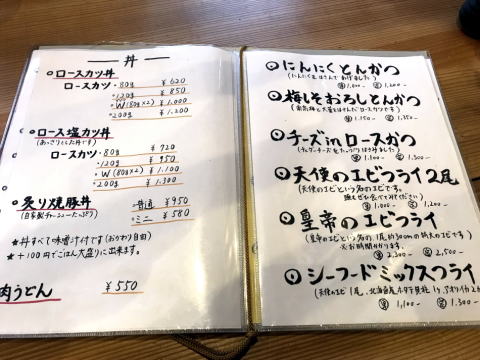 丼
ロースカツ丼
ロースカツ・80g ¥620
・120g ¥850
・W(80g×2) ¥1.000
・200g ¥1.200
ロース塩カツ丼
(あっさりとした丼です)
ロースカツ・80g ¥720
・120g ¥950
・W(80g×2) ¥1.100
・200g ¥1.300
炙り焼豚丼
(自家製チャーシューたっぷり)
普通 ¥950
ミニ ¥580
★丼すべて味噌汁付です(おかわり自由)
★+100円でごはん大盛りに出来ます。
肉うどん ¥550
にんにくとんかつ
1.000- 1.200-
梅しそおろしとんかつ
1.150- 1.350-
チーズinロースかつ
1.100- 1.300
天使のエビフライ2尾
(天使のエビという名のエビです。
頭もぜひ食べて下さい)
1.000- 1.200
皇帝のエビフライ
(皇帝のエビという名の、1尾約30cmの特大のエビです
※お時間かかります)
2.300- 2.500-
シーフードミックスフライ
(天使のエビ1尾、北海道産ホタテ貝柱1ヶ、
1,100- 1.300-